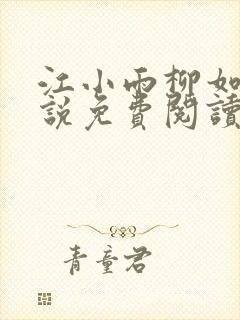 江小雨柳如
說免費閱讀
青童君